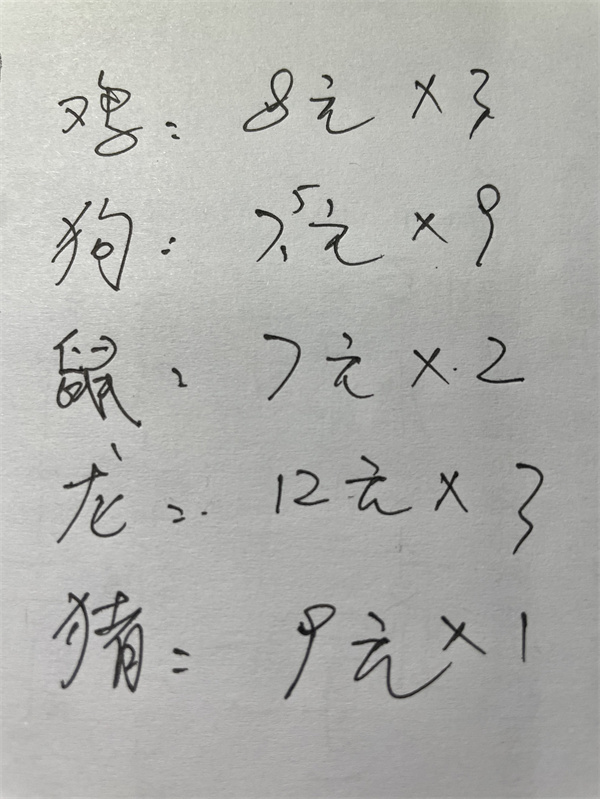 鸡: 8元 × 3
狗: 7.5元 × 9
鼠: 7元 × 2
龙: 12元 × 3
猪: 9元 × 1